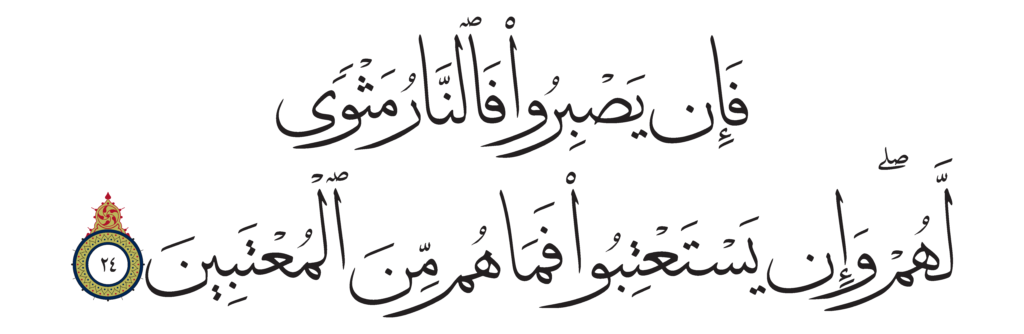 فَإِن يَصْبِرُوا۟ فَٱلنَّارُ مَثْوًى
لَّهُمْ ۖ وَإِن يَسْتَعْتِبُوا۟ فَمَا هُم مِّنَ ٱلْمُعْتَبِينَ ٢٤